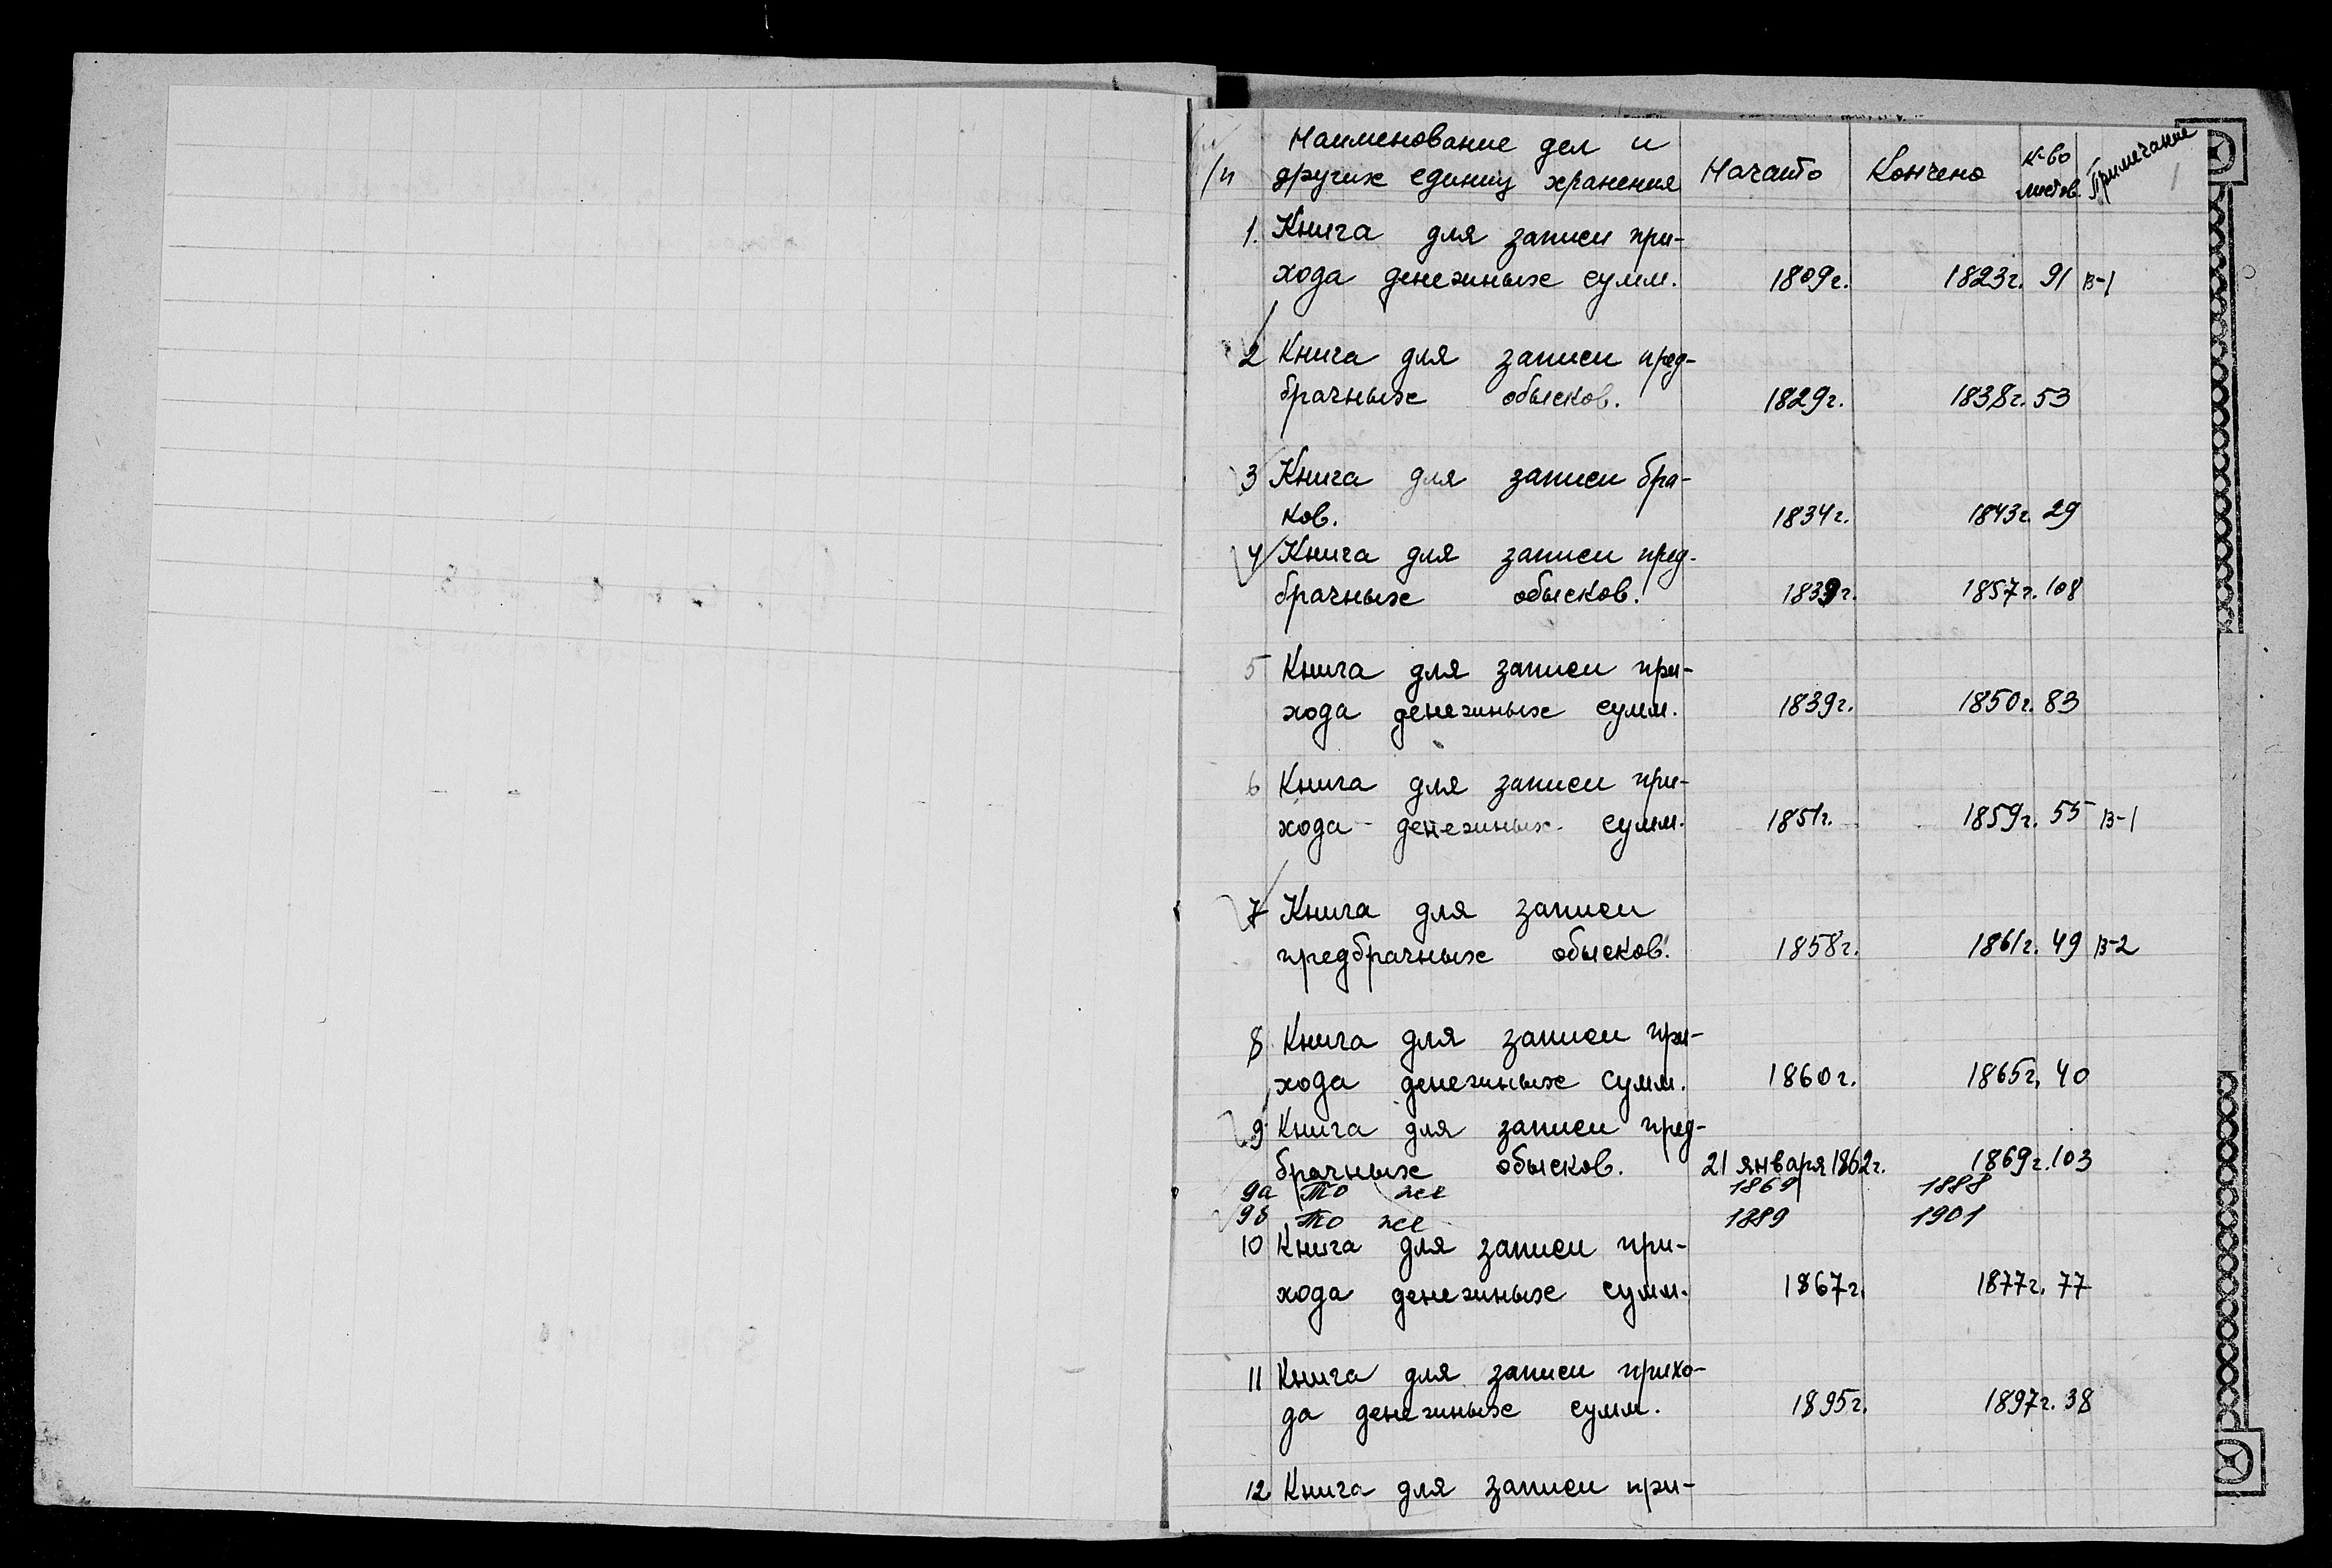 Наименование дел и
/п других единиц хранения Начато Кончено к-во листов Примечание 1
1. Книга для записи при-
хода денежных сумм. 1809г. 1823г. 91 В-1
2 Книга для записи пред-
брачных обысков. 1829г. 1838г. 53
3 Книга для записи бра-
ков. 1834г. 1843г. 29
4 Книга для записи пред-
брачных обысков. 1839г. 1857г. 108
5 Книга для записи при-
хода денежных сумм. 1839г. 1850г. 83
6 Книга для записи при-
хода денежных сумм. 1851г. 1859г. 55 В-1
7 Книга для записи
предбрачных обысков. 1858г. 1861г. 49 В-2
8 Книга для записи при-
хода денежных сумм. 1860г. 1865г. 40
9 Книга для записи пред-
брачных обысков. 21 января 1862г. 1869г. 103
9а То же 1869 1888
9б То же 1889 1901
10 Книга для записи при-
хода денежных сумм. 1867г. 1877г. 77
11 Книга для записи прихо-
да денежных сумм. 1895г. 1897г. 38
12 Книга для записи при-